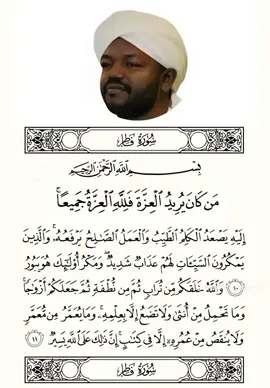 سُورَةُ فَاطِرٍ
بِسْمِ اللَّهِ الرَّحْمَٰنِ الرَّحِيمِ
مَن كَانَ يُرِيدُ الْعِزَّةَ فَلِلَّهِ الْعِزَّةُ جَمِيعًا ۚ
إِلَيْهِ يَصْعَدُ الْكَلِمُ الطَّيِّبُ وَالْعَمَلُ الصَّٰلِحُ يَرْفَعُهُ ۚ وَالَّذِينَ
يَمْكُرُونَ السَّيِّـَٔاتِ لَهُمْ عَذَابٌ شَدِيدٌ ۖ وَمَكْرُ أُو۟لَٰٓئِكَ هُوَ يَبُورُ
١٠ وَاللَّهُ خَلَقَكُم مِّن تُرَابٍ ثُمَّ مِن نُّطْفَةٍ ثُمَّ جَعَلَكُمْ أَزْوَٰجًا ۚ
وَمَا تَحْمِلُ مِنْ أُنثَىٰ وَلَا تَضَعُ إِلَّا بِعِلْمِهِ ۚ وَمَا يُعَمَّرُ مِن مُّعَمَّرٍ
وَلَا يُنقَصُ مِنْ عُمُرِهِ إِلَّا فِي كِتَٰبٍ ۚ إِنَّ ذَٰلِكَ عَلَى اللَّهِ يَسِيرٌ ١١
سُورَةُ فَاطِرٍ